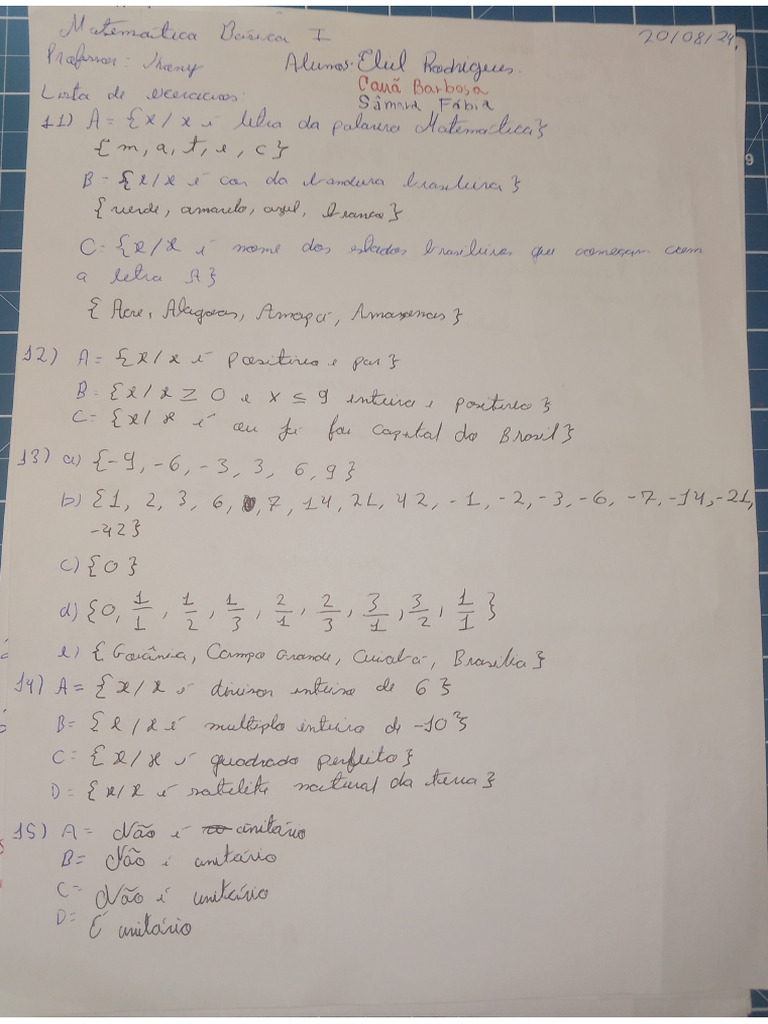 Matemática Básica I 20/08/24.
Professor: Jhony Alunos: Elul Rodrigues.
Cauã Barbosa
Sâmara Fábia
Lista de exercícios:
11) A = {x/x é letra da palavra Matemática}
{m, a, t, e, c}
B = {x/x é cor da bandeira brasileira}
{verde, amarelo, azul, branco}
C = {x/x é nome dos estados brasileiros que começam com
a letra A}
{Acre, Alagoas, Amapá, Amazonas}
12) A = {x/x é positivo e par}
B = {x/x ≥ 0 e x ≤ 9 inteiro e positivo}
C = {x/x é ou já foi capital do Brasil}
13) a) {-9, -6, -3, 3, 6, 9}
b) {1, 2, 3, 6, 7, 14, 21, 42, -1, -2, -3, -6, -7, -14, -21,
-42}
c) {0}
d) {0, 1/1, 1/2, 1/3, 2/1, 2/3, 3/1, 3/2, 1/1}
e) {Goiânia, Campo Grande, Cuiabá, Brasília}
14) A = {x/x é divisor inteiro de 6}
B = {x/x é multiplo inteiro de -10}
C = {x/x é quadrado perfeito}
D = {x/x é satelite natural da terra}
15) A = Não é unitário
B = Não é unitário
C = Não é unitário
D = É unitário